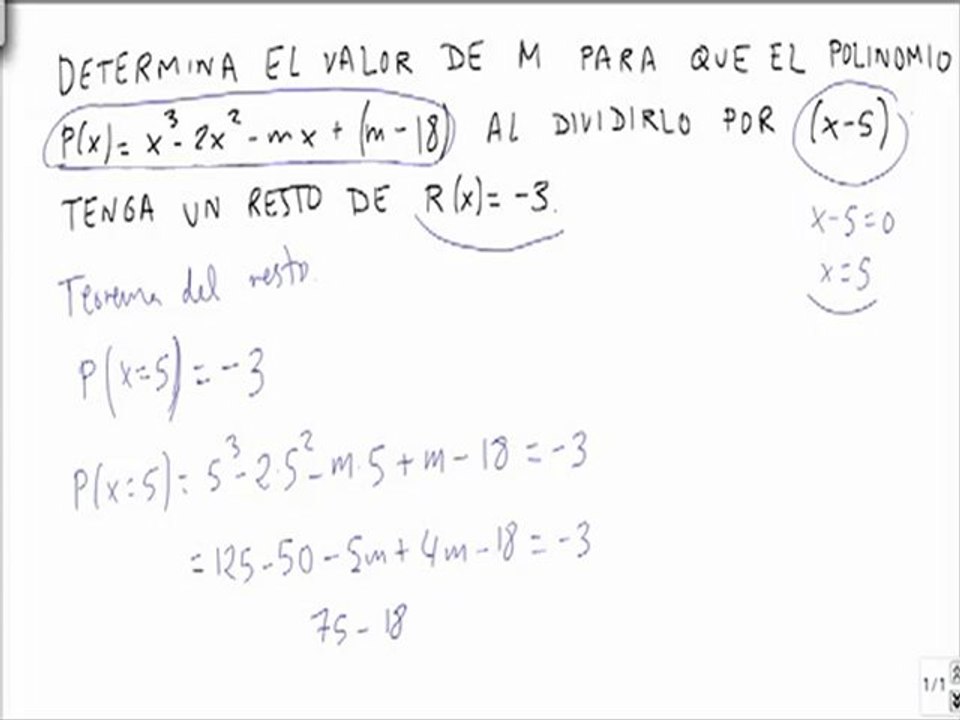 DETERMINA EL VALOR DE M PARA QUE EL POLINOMIO
P(x) = x³ - 2x² - mx + (m - 18) AL DIVIDIRLO POR (x-5)
TENGA UN RESTO DE R(x) = -3.
x-5=0
x=5
Teorema del resto.
P(x=5) = -3
P(x=5) = 5³ - 2·5² - m·5 + m - 18 = -3
= 125 - 50 - 5m + 4m - 18 = -3
75 - 18
1/1